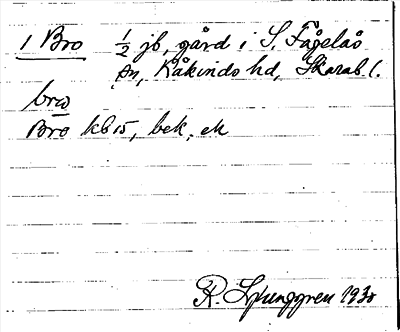 1 Bro 1/2 jb, gård i S. Fågelås
sn, Kåkinds hd, Skarab. l.
brω
Bro kb 15, bek, ek
R. Ljunggren 1930